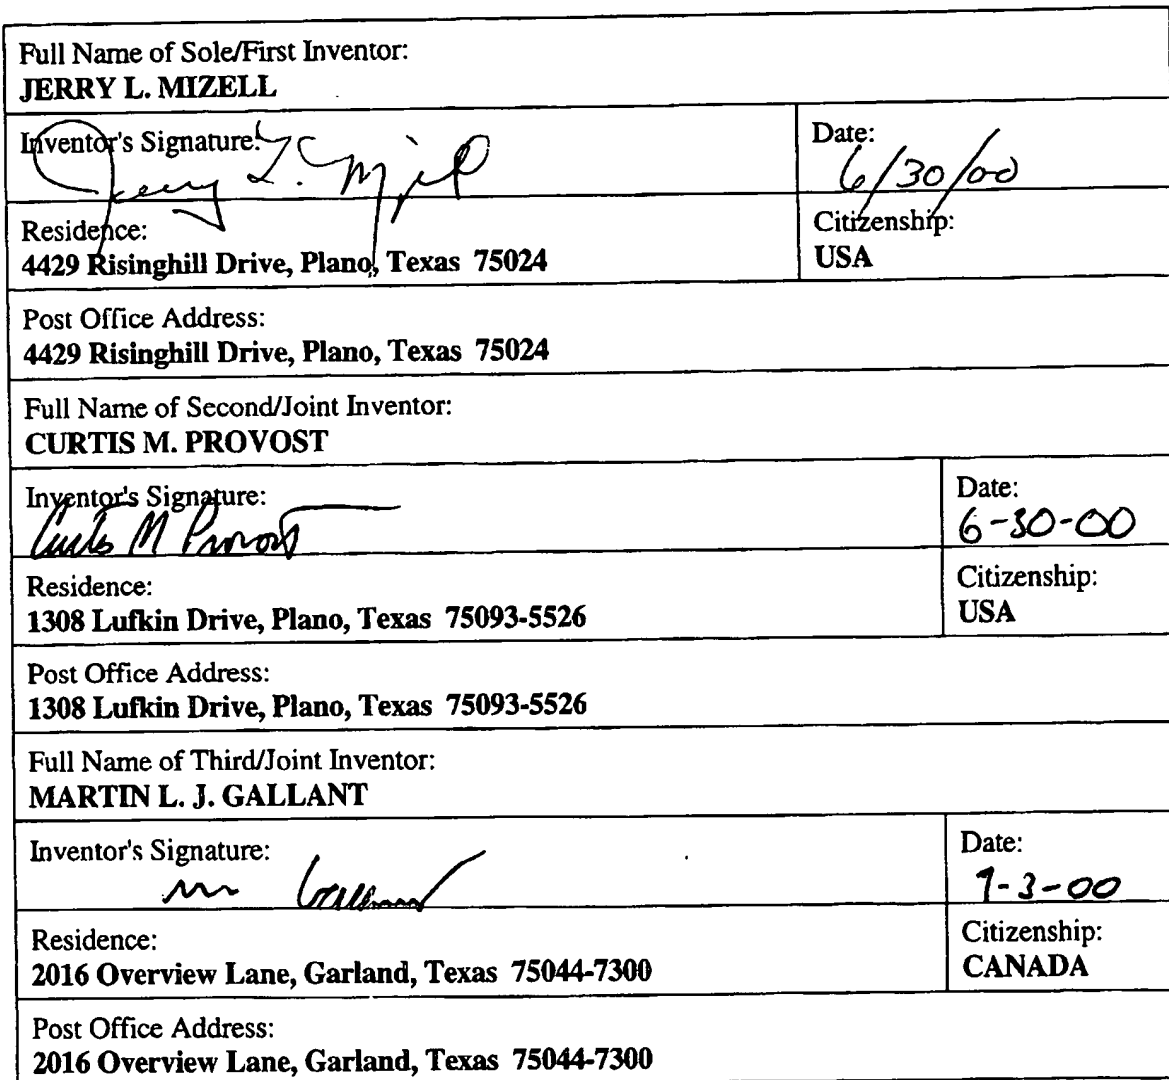 Full Name of Sole/First Inventor:
JERRY L. MIZELL
Inventor's Signature:
Jerry L. Mizell
Date:
6/30/00
Residence:
4429 Risinghill Drive, Plano, Texas 75024
Citizenship:
USA
Post Office Address:
4429 Risinghill Drive, Plano, Texas 75024
Full Name of Second/Joint Inventor:
CURTIS M. PROVOST
Inventor's Signature:
Curtis M Provost
Date:
6-30-00
Residence:
1308 Lufkin Drive, Plano, Texas 75093-5526
Citizenship:
USA
Post Office Address:
1308 Lufkin Drive, Plano, Texas 75093-5526
Full Name of Third/Joint Inventor:
MARTIN L. J. GALLANT
Inventor's Signature:
Gallant
Date:
7-3-00
Residence:
2016 Overview Lane, Garland, Texas 75044-7300
Citizenship:
CANADA
Post Office Address:
2016 Overview Lane, Garland, Texas 75044-7300